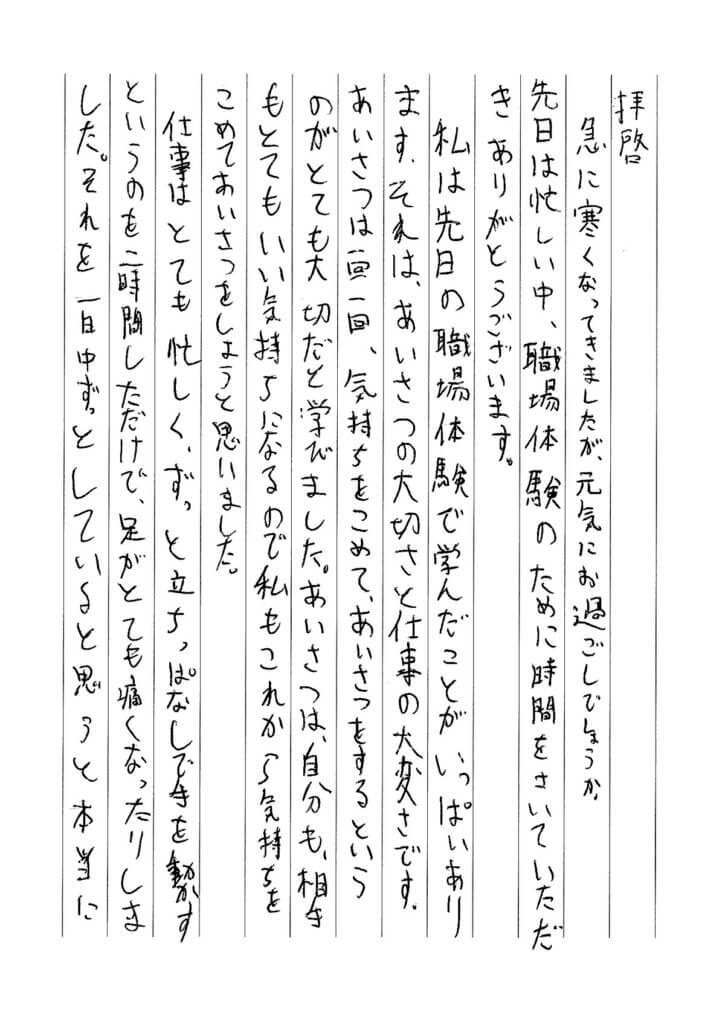 拝啓
急に寒くなってきましたが、元気にお過ごしでしょうか。
先日は忙しい中、職場体験のために時間をさいていただ
きありがとうございます。
私は先日の職場体験で学んだことがいっぱいあり
ます。それは、あいさつの大切さと仕事の大変さです。
あいさつは一回一回、気持ちをこめて、あいさつをするという
のがとても大切だと学びました。あいさつは、自分も、相手
もとてもいい気持ちになるので私もこれから気持ちを
こめてあいさつをしようと思いました。
仕事はとても忙しく、ずっと立ちっぱなしで手を動かす
というのを二時間しただけで、足がとても痛くなったりしま
した。それを一日中ずっとしていると思うと本当に